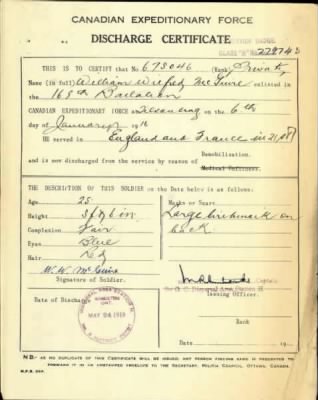 CANADIAN EXPEDITIONARY FORCE
DISCHARGE CERTIFICATE
THIS IS TO CERTIFY that No. 673046 (Rank) Private
Name (in full) William Wilfred McGuire enlisted in
the 168th Battalion
CANADIAN EXPEDITIONARY FORCE on the 6th
day of January 1916
HE served in England and France
and is now discharged from the service by reason of Demobilisation.
Medical Unfitness.
THE DESCRIPTION OF THIS SOLDIER on the Date below is as follows:
Age 25
Marks or Scars
Height 5ft 6in
Large birthmark on
Complexion Fair
back.
Eyes Blue
Hair Red
W. W. McGuire
Signature of Soldier.
Captain
O. C. Dispersal Area Station H
Issuing Officer.
Date of Discharge
MAY 24 1919
Rank
Date 19
N.B.- AS NO DUPLICATE OF THIS CERTIFICATE WILL BE ISSUED, ANY PERSON FINDING SAME IS REQUESTED TO
FORWARD IT IN AN UNSTAMPED ENVELOPE TO THE SECRETARY, MILITIA COUNCIL, OTTAWA, CANADA.